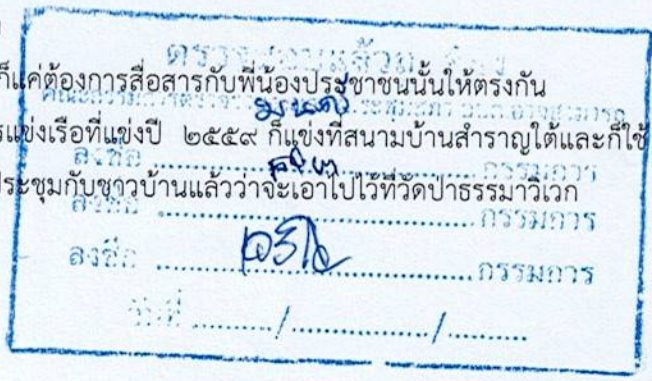 ก็แค่ต้องการสื่อสารกับพี่น้องประชาชนนั้นให้ตรงกัน
รแข่งเรือที่แข่งปี ๒๕๕๙ ก็แข่งที่สนามบ้านสำราญใต้และก็ใช้
ประชุมกับชาวบ้านแล้วว่าจะเอาไปไว้ที่วัดป่าธรรมาวิเวก
ลงชื่อ ........................ กรรมการ
ลงชื่อ ........................ กรรมการ
ลงชื่อ ........................ กรรมการ
วันที่ ........./................/..........